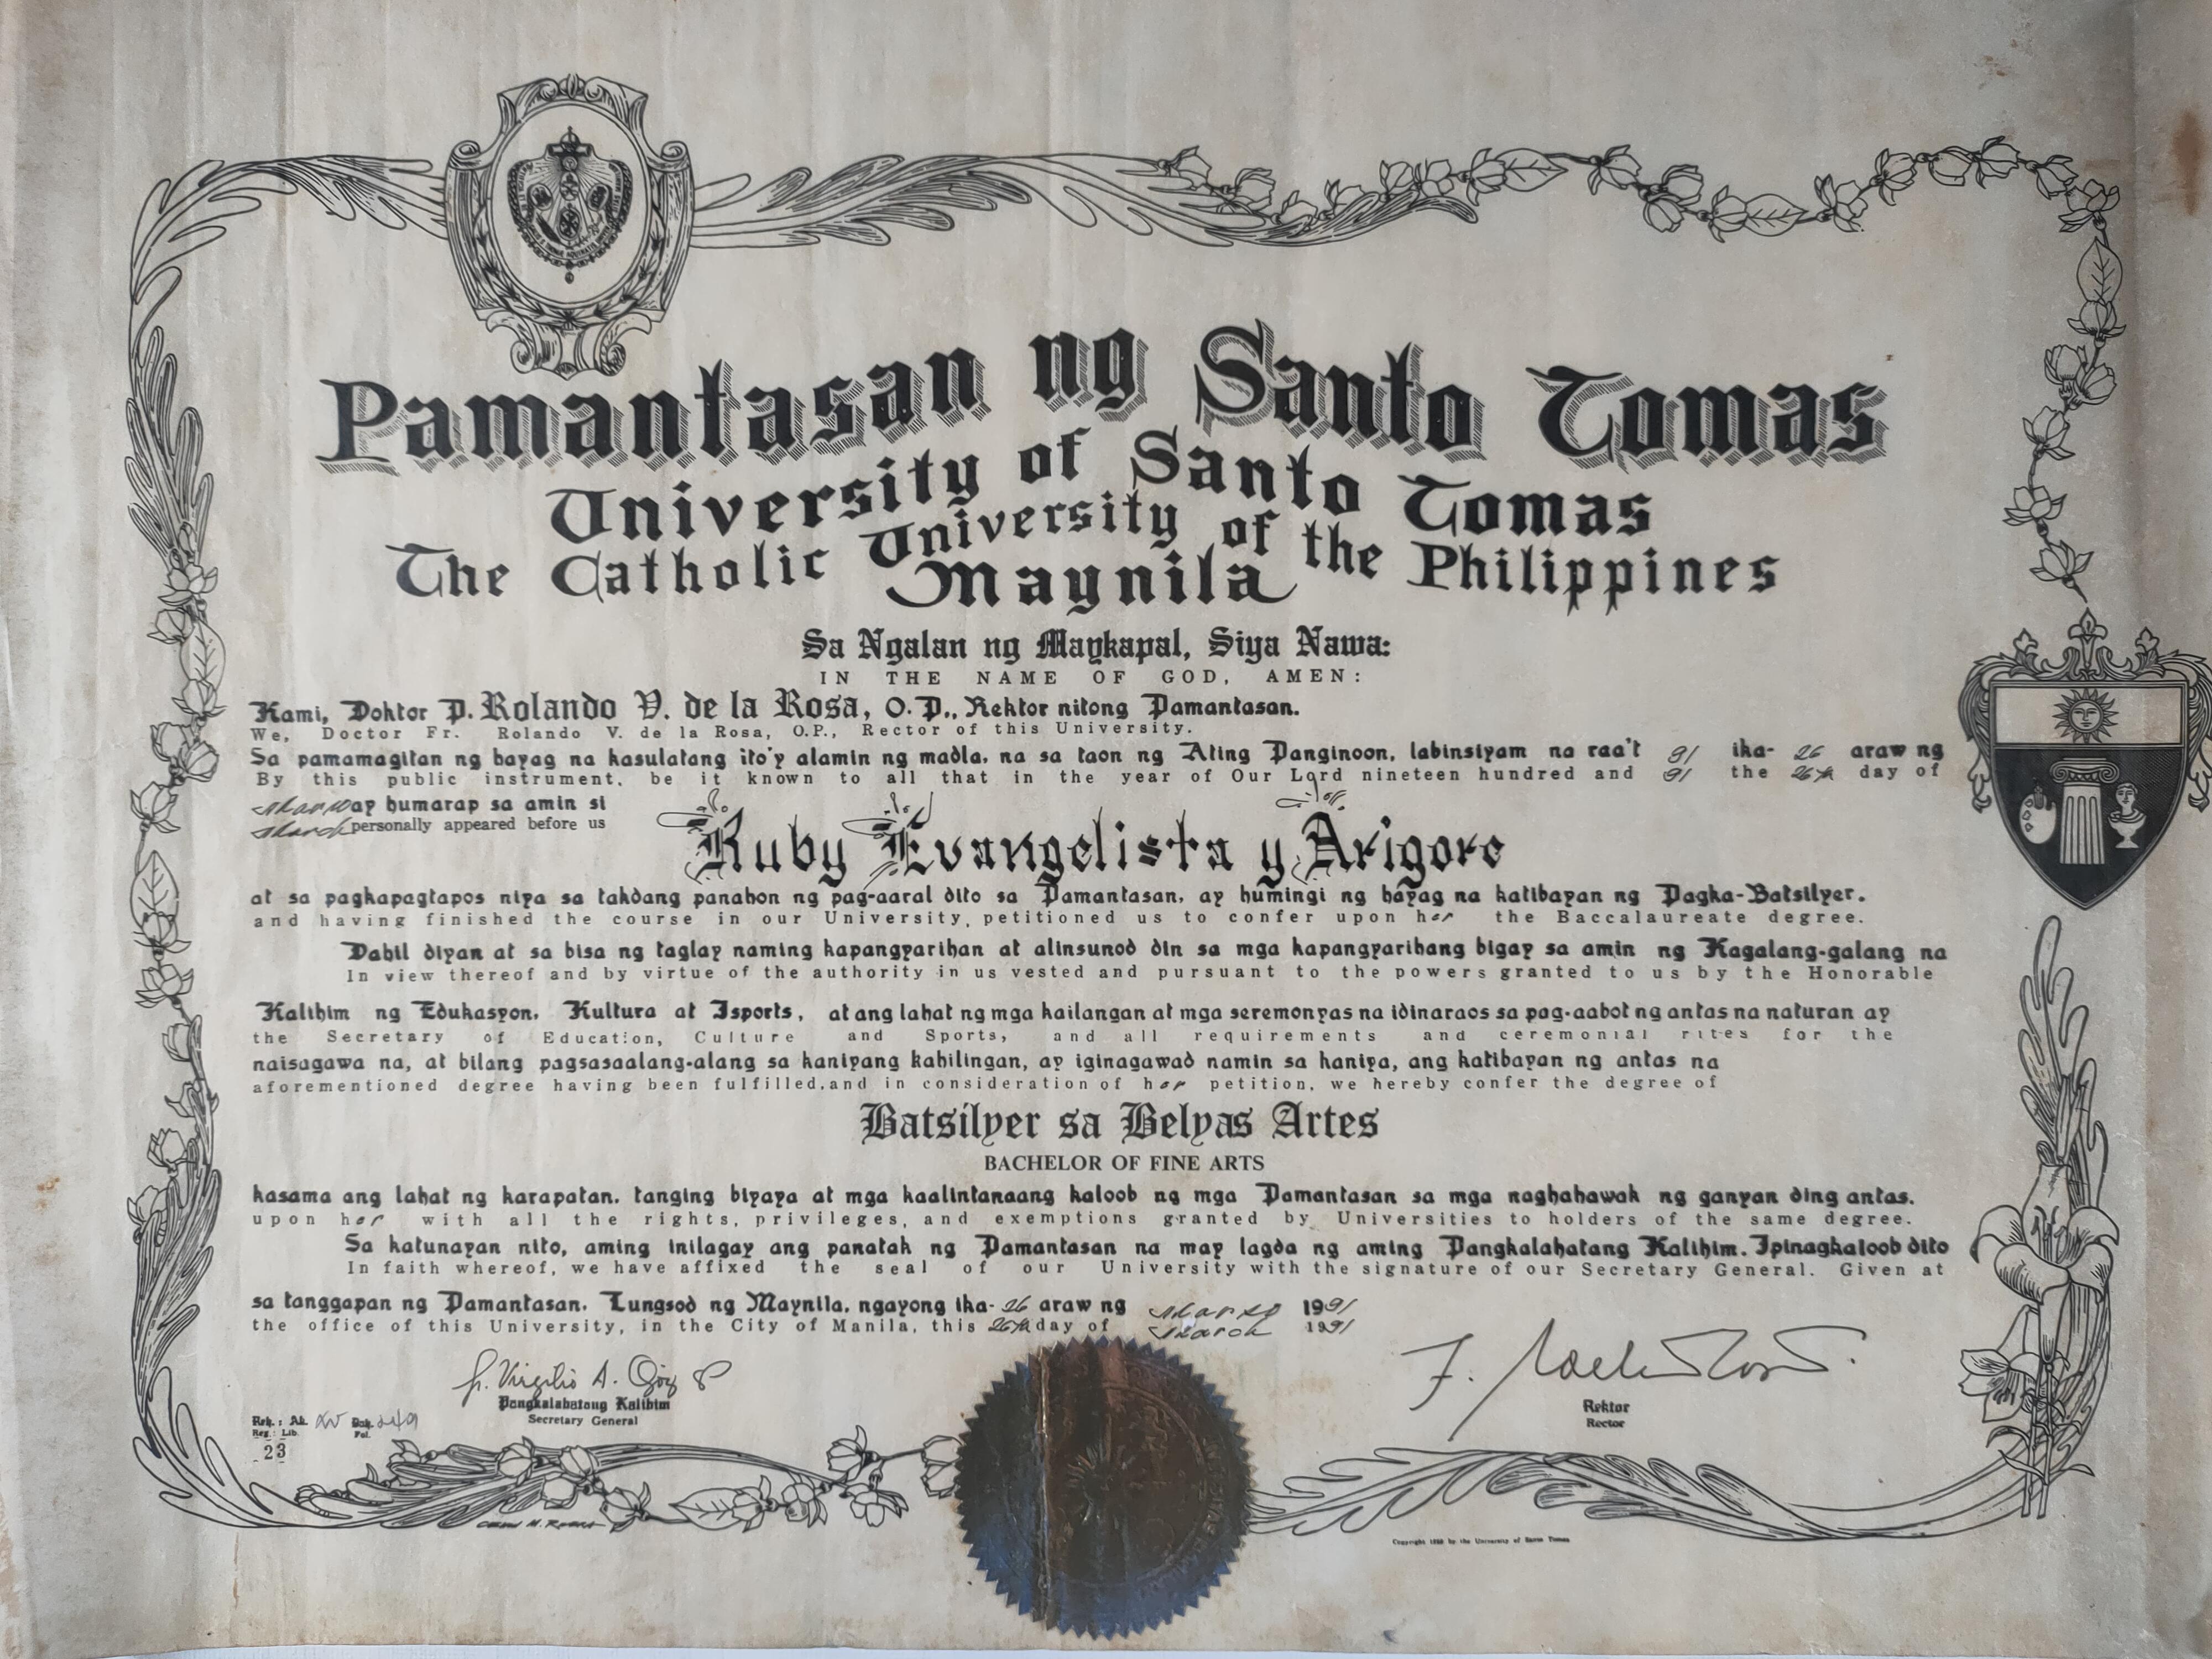 Pamantasan ng Santo Tomas
University of Santo Tomas
The Catholic University of the Philippines
Maynila
Sa Ngalan ng Maykapal, Siya Nawa:
IN THE NAME OF GOD, AMEN:
Kami, Doktor P. Rolando V. de la Rosa, O.P., Rektor nitong Pamantasan.
We, Doctor Fr. Rolando V. de la Rosa, O.P., Rector of this University.
Sa pamamagitan ng bayag na kasulatang ito'y alamin ng madla, na sa taon ng Ating Panginoon, labinsiyam na raa't 91 ika- 26 araw ng
By this public instrument, be it known to all that in the year of Our Lord nineteen hundred and 91 the 26th day of
Marso ay humarap sa amin si
March personally appeared before us
Ruby Evangelista y Arigore
at sa pagkapagtapos niya sa takdang panahon ng pag-aaral dito sa Pamantasan, ay humingi ng hayag na katibayan ng Pagka-Batsilyer.
and having finished the course in our University, petitioned us to confer upon her the Baccalaureate degree.
Dahil diyan at sa bisa ng taglay naming kapangyarihan at alinsunod din sa mga kapangyarihang bigay sa amin ng Kagalang-galang na
In view thereof and by virtue of the authority in us vested and pursuant to the powers granted to us by the Honorable
Kalihim ng Edukasyon, Kultura at Isports, at ang lahat ng mga kailangan at mga seremonyas na idinaraos sa pag-aabot ng antas na naturan ay
the Secretary of Education, Culture and Sports, and all requirements and ceremonial rites for the
naisagawa na, at bilang pagsasaalang-alang sa kaniyang kahilingan, ay iginagawad namin sa kaniya, ang katibayan ng antas na
aforementioned degree having been fulfilled, and in consideration of her petition, we hereby confer the degree of
Batsilyer sa Belyas Artes
BACHELOR OF FINE ARTS
kasama ang lahat ng karapatan, tanging biyaya at mga kaalintanaang kaloob ng mga Pamantasan sa mga naghahawak ng ganyan ding antas.
upon her with all the rights, privileges, and exemptions granted by Universities to holders of the same degree.
Sa katunayan nito, aming inilagay ang panatak ng Pamantasan na may lagda ng aming Pangkalahatang Kalihim. Ipinagkaloob dito
In faith whereof, we have affixed the seal of our University with the signature of our Secretary General. Given at
sa tanggapan ng Pamantasan, Lungsod ng Maynila, ngayong ika- 26 araw ng Marso 1991
the office of this University, in the City of Manila, this 26th day of March 1991
Fr. Virgilio A.
Pangkalahatang Kalihim
Secretary General
Rektor
Rector
Rek.: Ak. XV Dah. 249
Reg.: Lib. Fol.
23
Copyright by the University of Santo Tomas